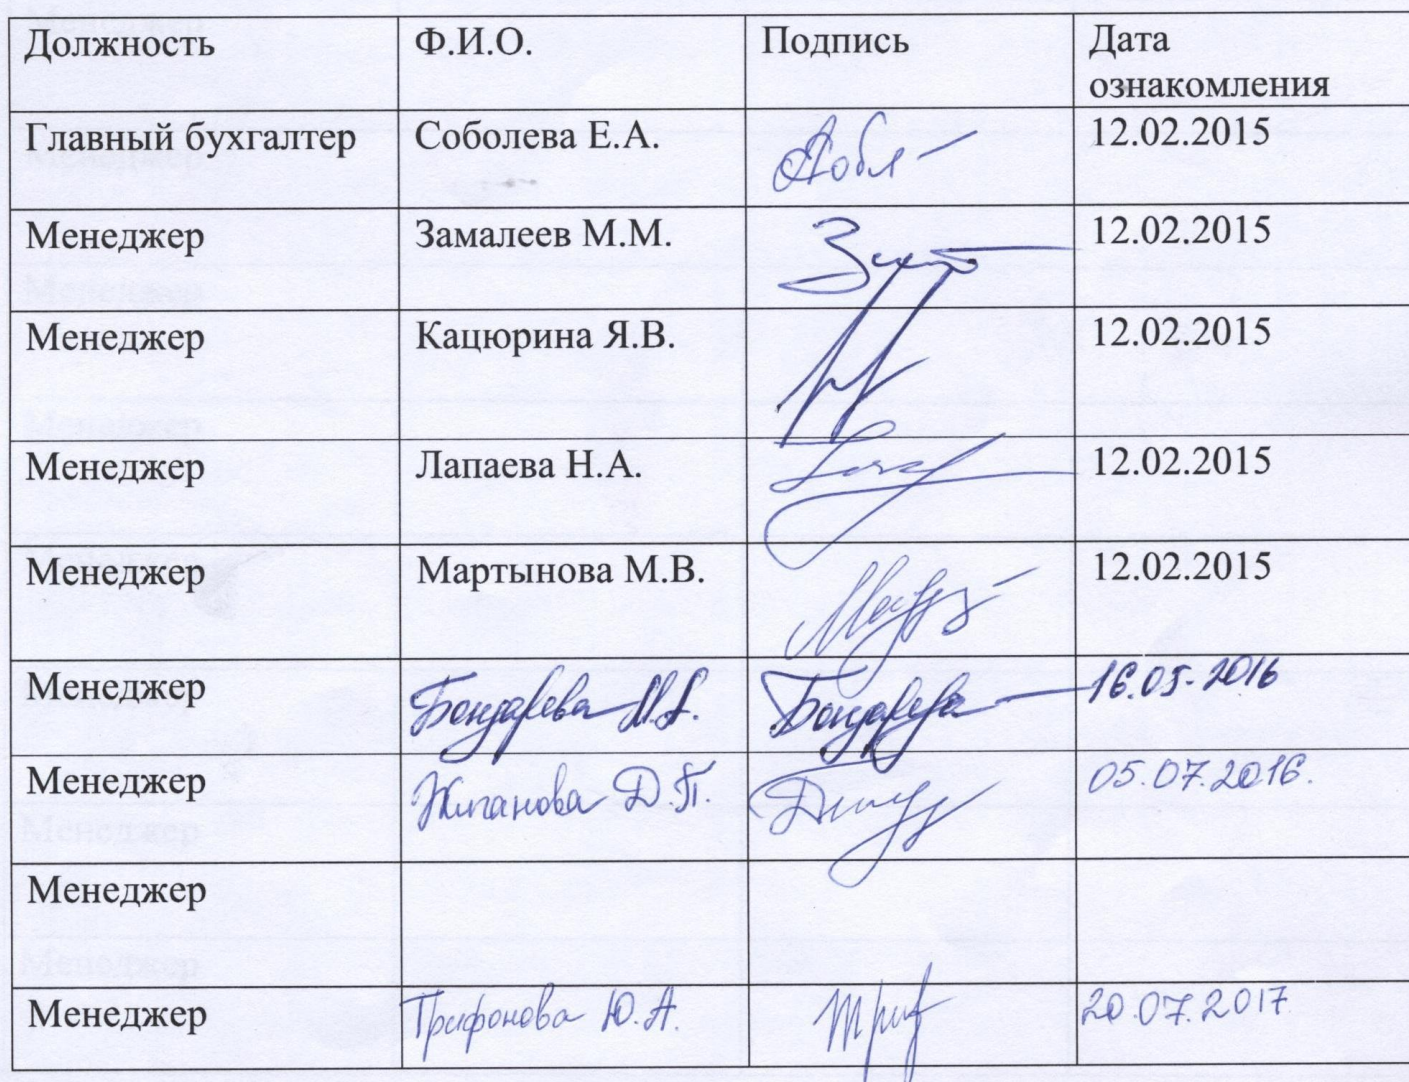 Должность Ф.И.О. Подпись Дата
ознакомления
Главный бухгалтер Соболева Е.А. 12.02.2015
Менеджер Замалеев М.М. 12.02.2015
Менеджер Кацюрина Я.В. 12.02.2015
Менеджер Лапаева Н.А. 12.02.2015
Менеджер Мартынова М.В. 12.02.2015
Менеджер Бондарева И.А. Бондарева 16.05.2016
Менеджер Жманова Д.П. 05.07.2016.
Менеджер
Менеджер Трифонова Ю.А. 20.07.2017